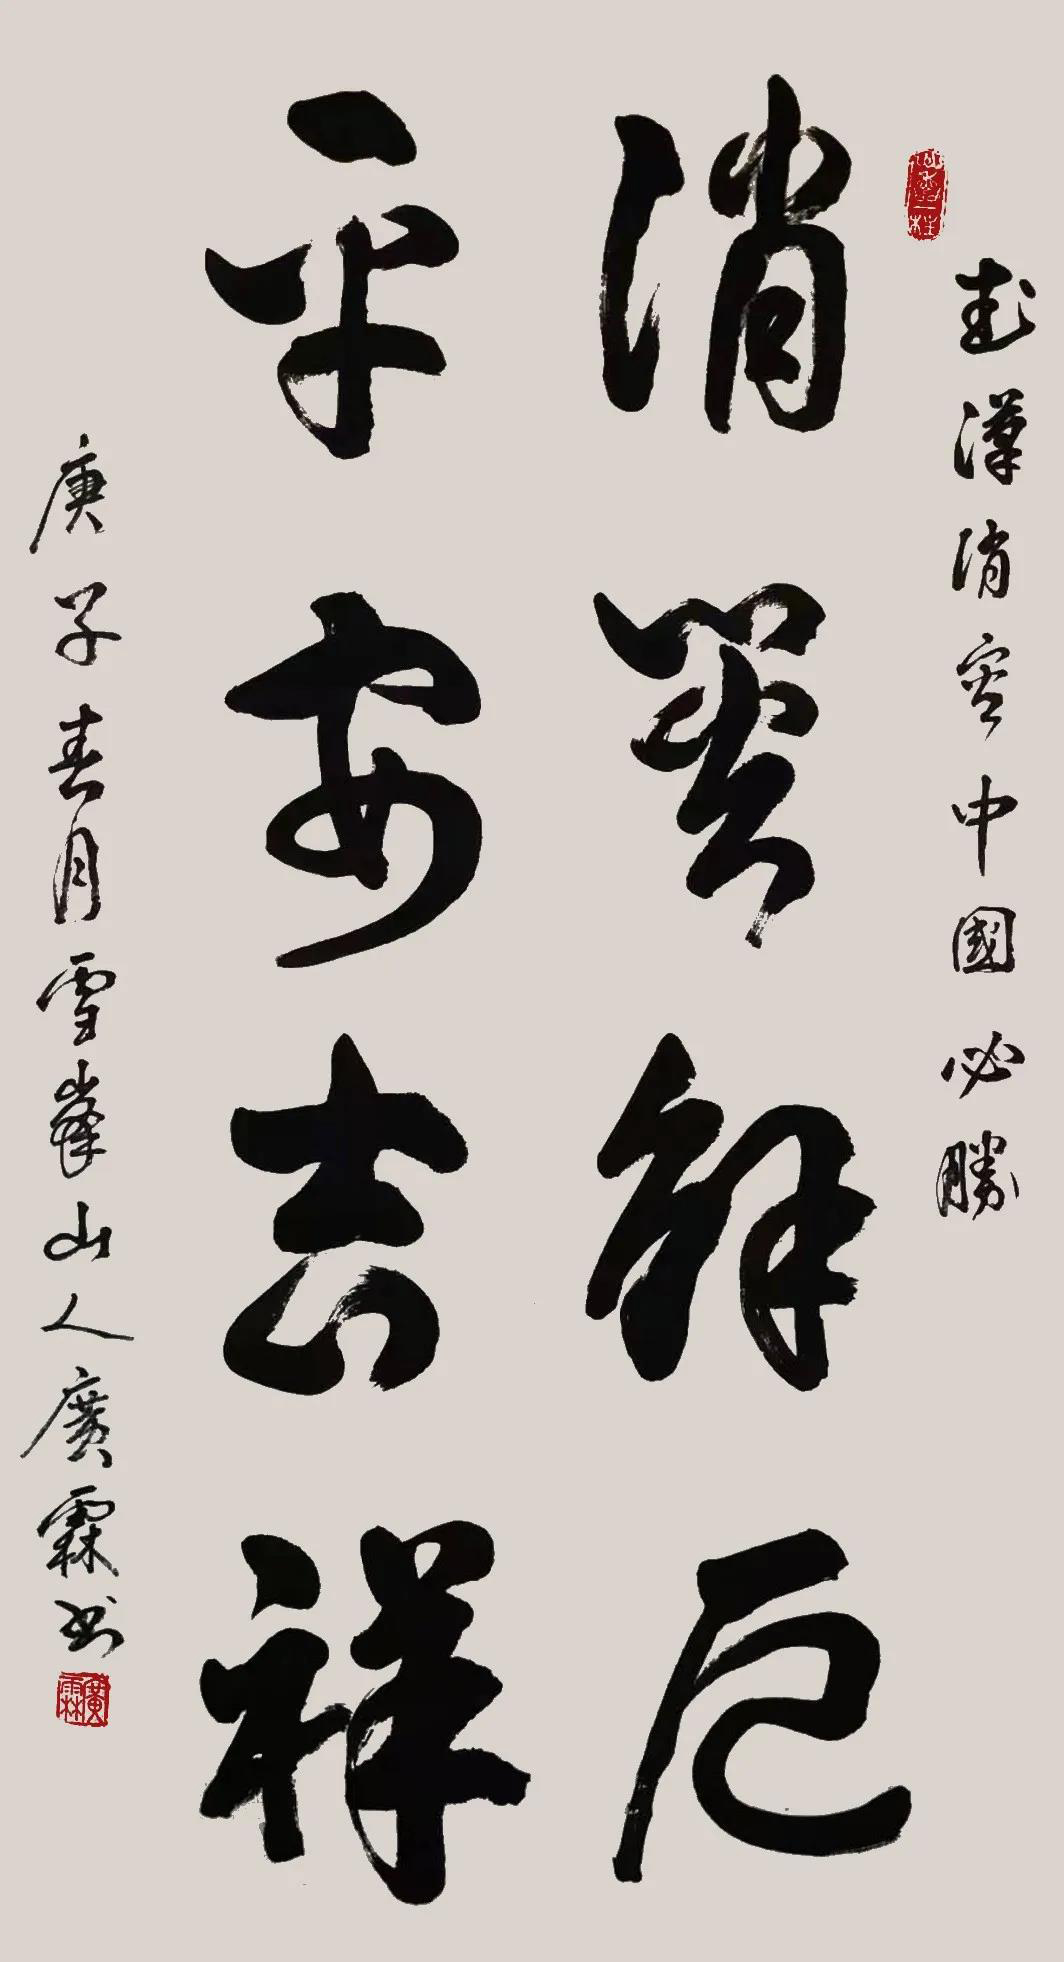 武漢消灾中國必勝
消災解厄
平安吉祥
庚子春月雪峯山人廣霖书
廣霖